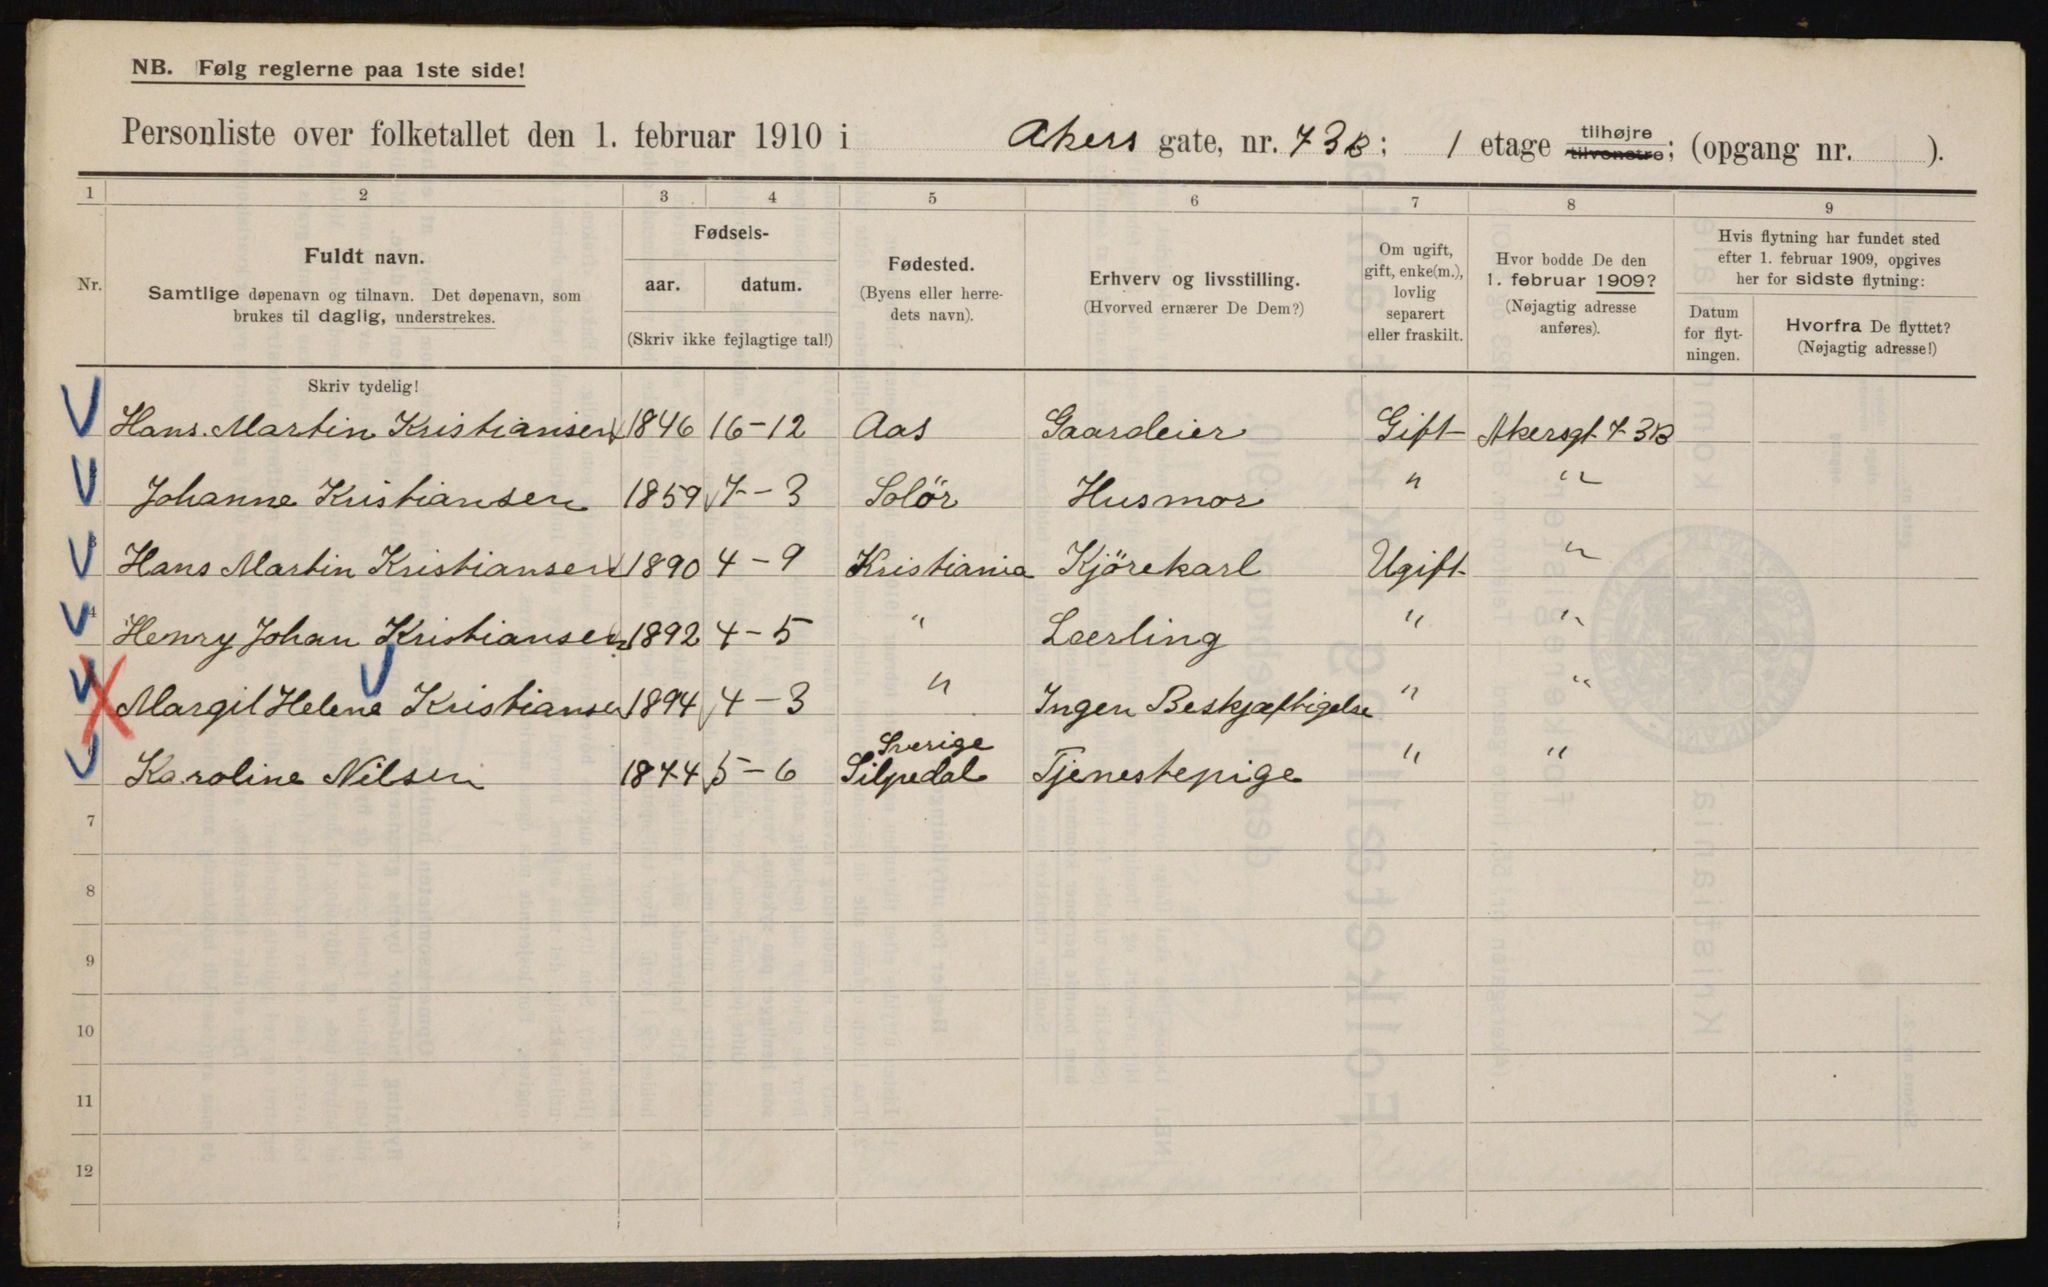 NB. Følg reglerne paa 1ste side!
Personliste over folketallet den 1. februar 1910 i Akers gate, nr. 73B; 1 etage tilhøjre tilvenstre; (opgang nr. ).
1 2 3 4 5 6 7 8 9
Nr.
Fuldt navn.
Samtlige døpenavn og tilnavn. Det døpenavn, som
brukes til daglig, understrekes.
Fødsels-
aar. datum.
(Skriv ikke fejlagtige tal!)
Fødested.
(Byens eller herre-
dets navn).
Erhverv og livsstilling.
(Hvorved ernærer De Dem?)
Om ugift,
gift, enke(m.),
lovlig
separert
eller fraskilt.
Hvor bodde De den
1. februar 1909?
(Nøjagtig adresse
anføres).
Hvis flytning har fundet sted
efter 1. februar 1909, opgives
her for sidste flytning:
Datum
for flyt-
ningen.
Hvorfra De flyttet?
(Nøjagtig adresse!)
Skriv tydelig!
Hans Martin Kristiansen 1846 16-12 Aas Gaardeier Gift Akersgt 73B
Johanne Kristiansen 1859 7-3 Solör Husmor " "
3 Hans Martin Kristiansen 1890 4-9 Kristiania Kjörekarl Ugift "
4 Henry Johan Kristiansen 1892 4-5 " Lærling " "
Margit Helene Kristiansen 1894 4-3 " Ingen Beskjæftigelse " "
Karoline Nilsen 1844 5-6 Sverige Silpedal Tjenestepige " "
7
8
9
10
11
12